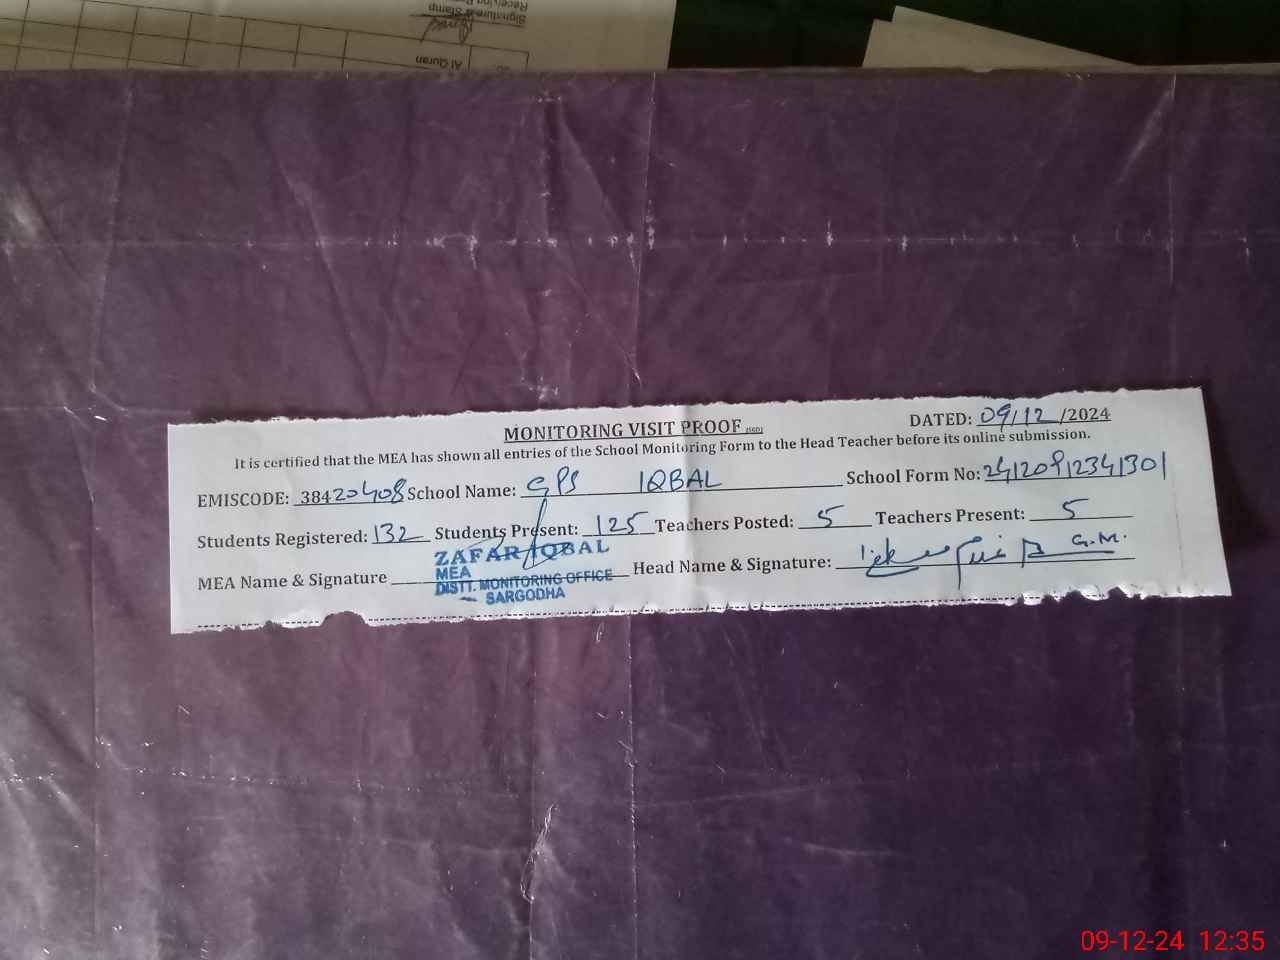 Signature & Stamp
Al Quran
MONITORING VISIT PROOF
DATED: 09/12/2024
It is certified that the MEA has shown all entries of the School Monitoring Form to the Head Teacher before its online submission.
EMISCODE: 38420408 School Name: GPS IQBAL School Form No: 24120912341301
Students Registered: 132 Students Present: 125 Teachers Posted: 5 Teachers Present: 5
MEA Name & Signature Head Name & Signature: G.M.
ZAFAR IQBAL
MEA
DISTT. MONITORING OFFICE
SARGODHA
09-12-24 12:35